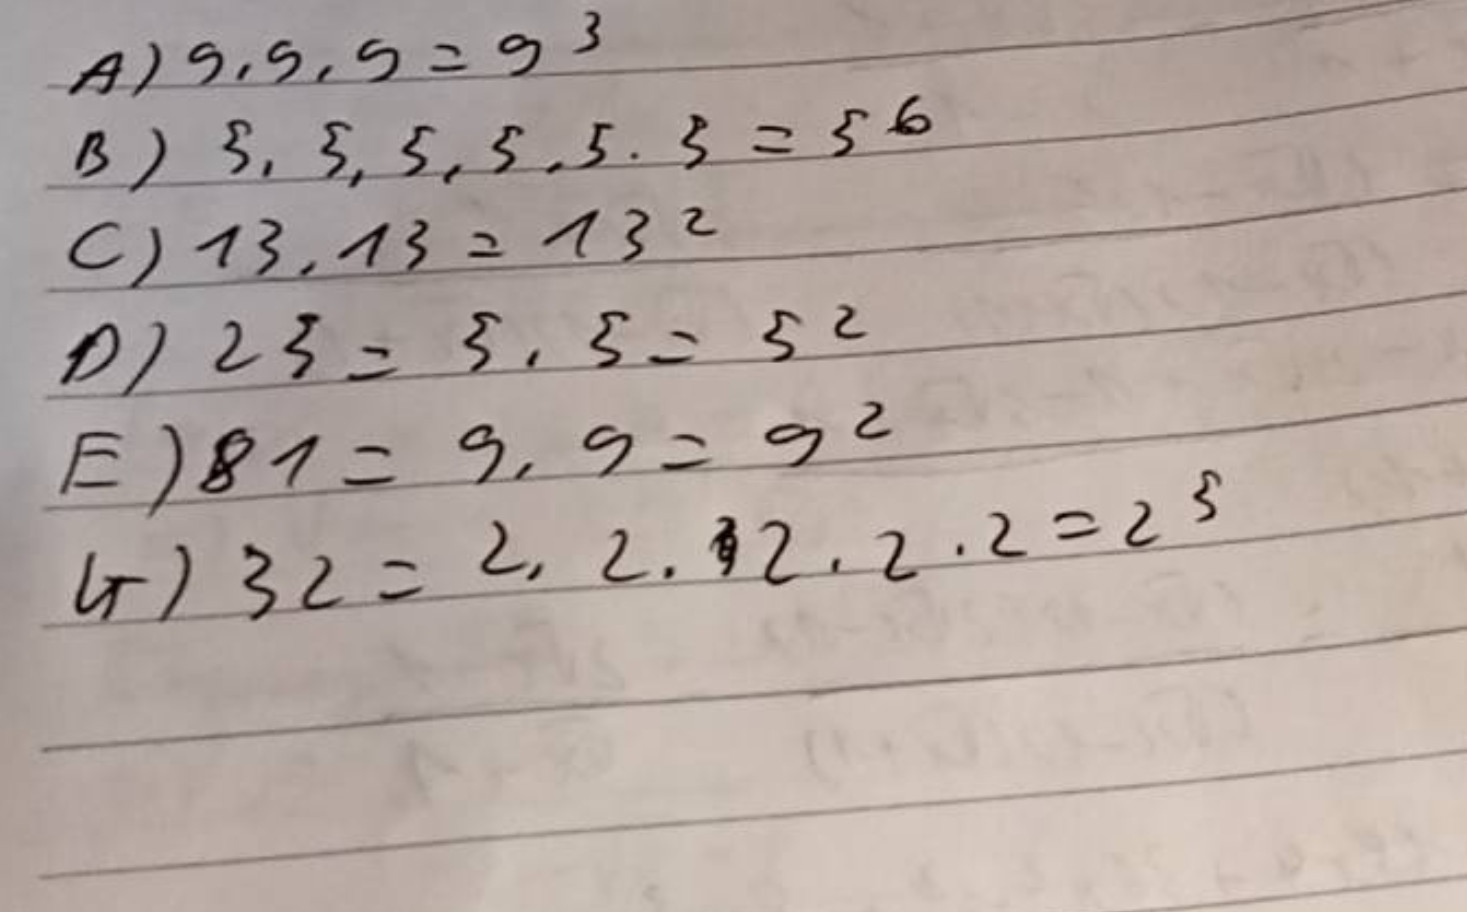 A) 9.9.9 = 9³
B) 5.5.5.5.5.5 = 5⁶
C) 13.13 = 13²
D) 25 = 5.5 = 5²
E) 81 = 9.9 = 9²
G) 32 = 2.2.2.2.2 = 2⁵